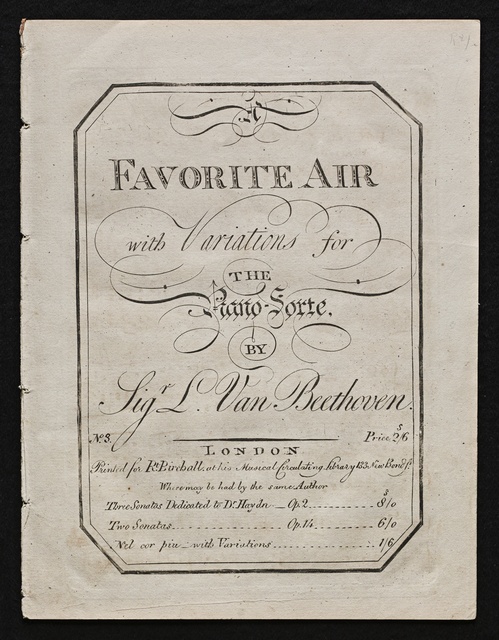 A
FAVORITE AIR
with Variations for
THE
Piano-Forte.
BY
Sigr L. Van Beethoven.
No 3. Price 2s/6
LONDON
Printed for Rt Birchall, at his Musical Circulating Library 133 New Bond St
Where may be had by the same Author
Three Sonatas Dedicated to Dr Haydn — Op. 2 ........... 8s/0
Two Sonatas .................... Op. 14 ........... 6/0
Nel cor piu — with Variations ................ 1/6